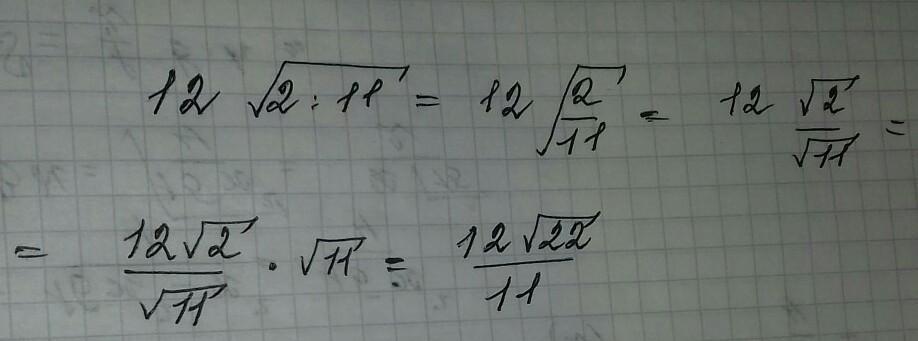 12 √(2 : 11) = 12 √(2/11) = 12 √2/√11 =
= 12√2/√11 · √11 = 12√22/11